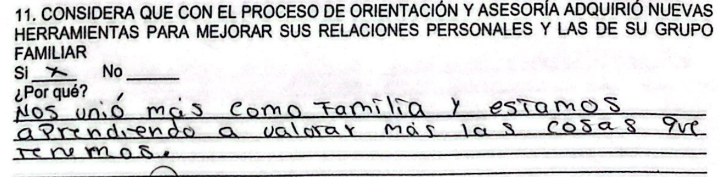 11. CONSIDERA QUE CON EL PROCESO DE ORIENTACIÓN Y ASESORÍA ADQUIRIÓ NUEVAS
HERRAMIENTAS PARA MEJORAR SUS RELACIONES PERSONALES Y LAS DE SU GRUPO
FAMILIAR
Si x No
¿Por qué?
Nos unió más como Familia y estamos
aprendiendo a valorar más las cosas que
tenemos.